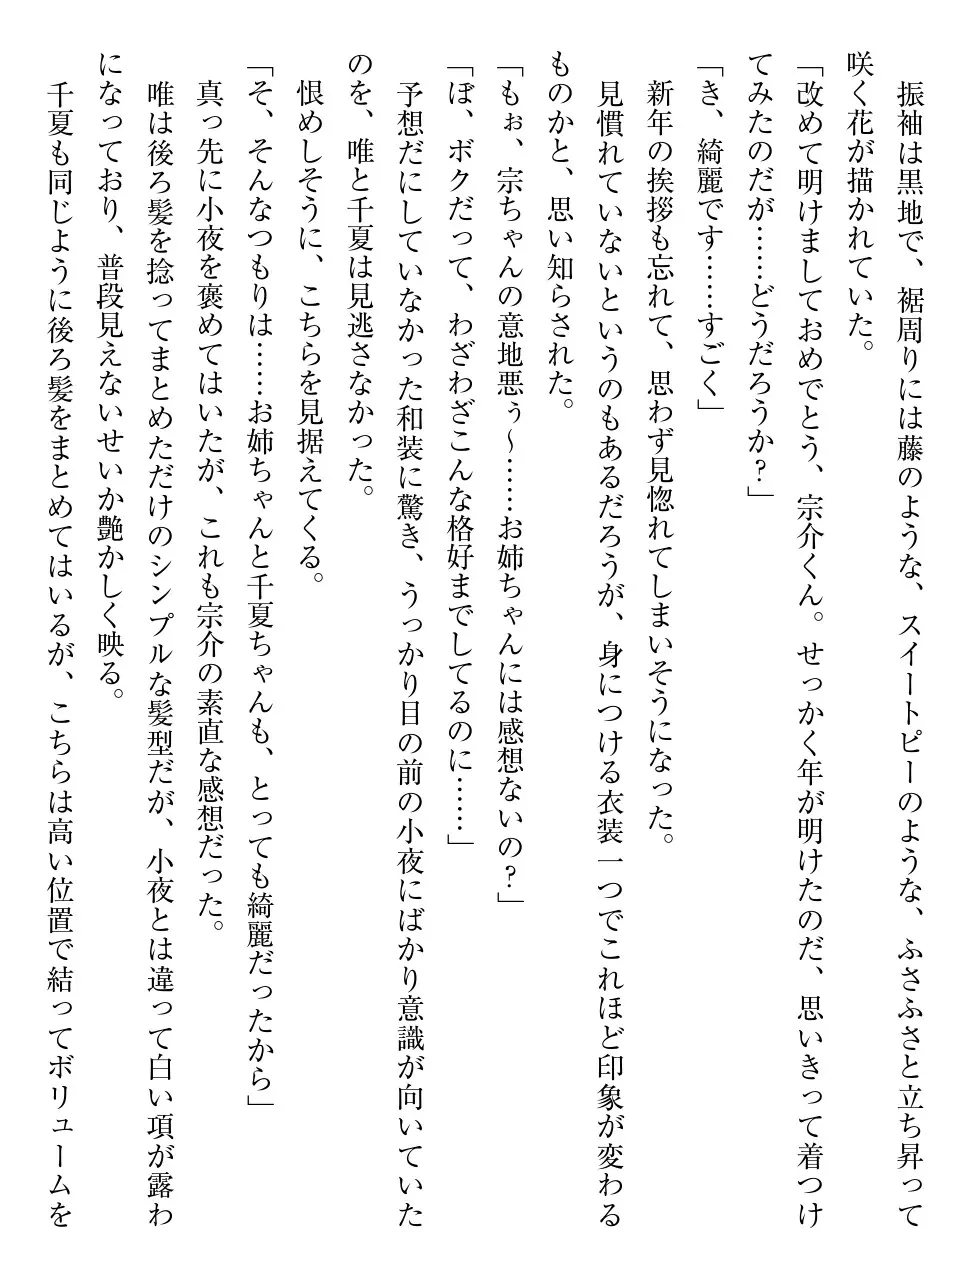 振袖は黒地で、裾周りには藤のような、スイートピーのような、ふさふさと立ち昇って
咲く花が描かれていた。
「改めて明けましておめでとう、宗介くん。せっかく年が明けたのだ、思いきって着つけ
てみたのだが……どうだろうか？」
「き、綺麗です……すごく」
新年の挨拶も忘れて、思わず見惚れてしまいそうになった。
見慣れていないというのもあるだろうが、身につける衣装一つでこれほど印象が変わる
ものかと、思い知らされた。
「もぉ、宗ちゃんの意地悪ぅ～……お姉ちゃんには感想ないの？」
「ぼ、ボクだって、わざわざこんな格好までしてるのに……」
予想だにしていなかった和装に驚き、うっかり目の前の小夜にばかり意識が向いていた
のを、唯と千夏は見逃さなかった。
恨めしそうに、こちらを見据えてくる。
「そ、そんなつもりは……お姉ちゃんと千夏ちゃんも、とっても綺麗だったから」
真っ先に小夜を褒めてはいたが、これも宗介の素直な感想だった。
唯は後ろ髪を捻ってまとめただけのシンプルな髪型だが、小夜とは違って白い項が露わ
になっており、普段見えないせいか艶かしく映る。
千夏も同じように後ろ髪をまとめてはいるが、こちらは高い位置で結ってボリュームを